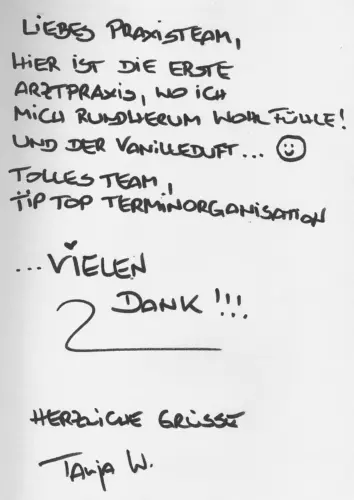 LIEBES PRAXISTEAM,
HIER IST DIE ERSTE
ARZTPRAXIS, WO ICH
MICH RUNDHERUM WOHL FÜHLE!
UND DER VANILLEDUFT...
TOLLES TEAM,
TIP TOP TERMINORGANISATION
...VIELEN
DANK!!!
HERZLICHE GRÜSSE
Tanja W.